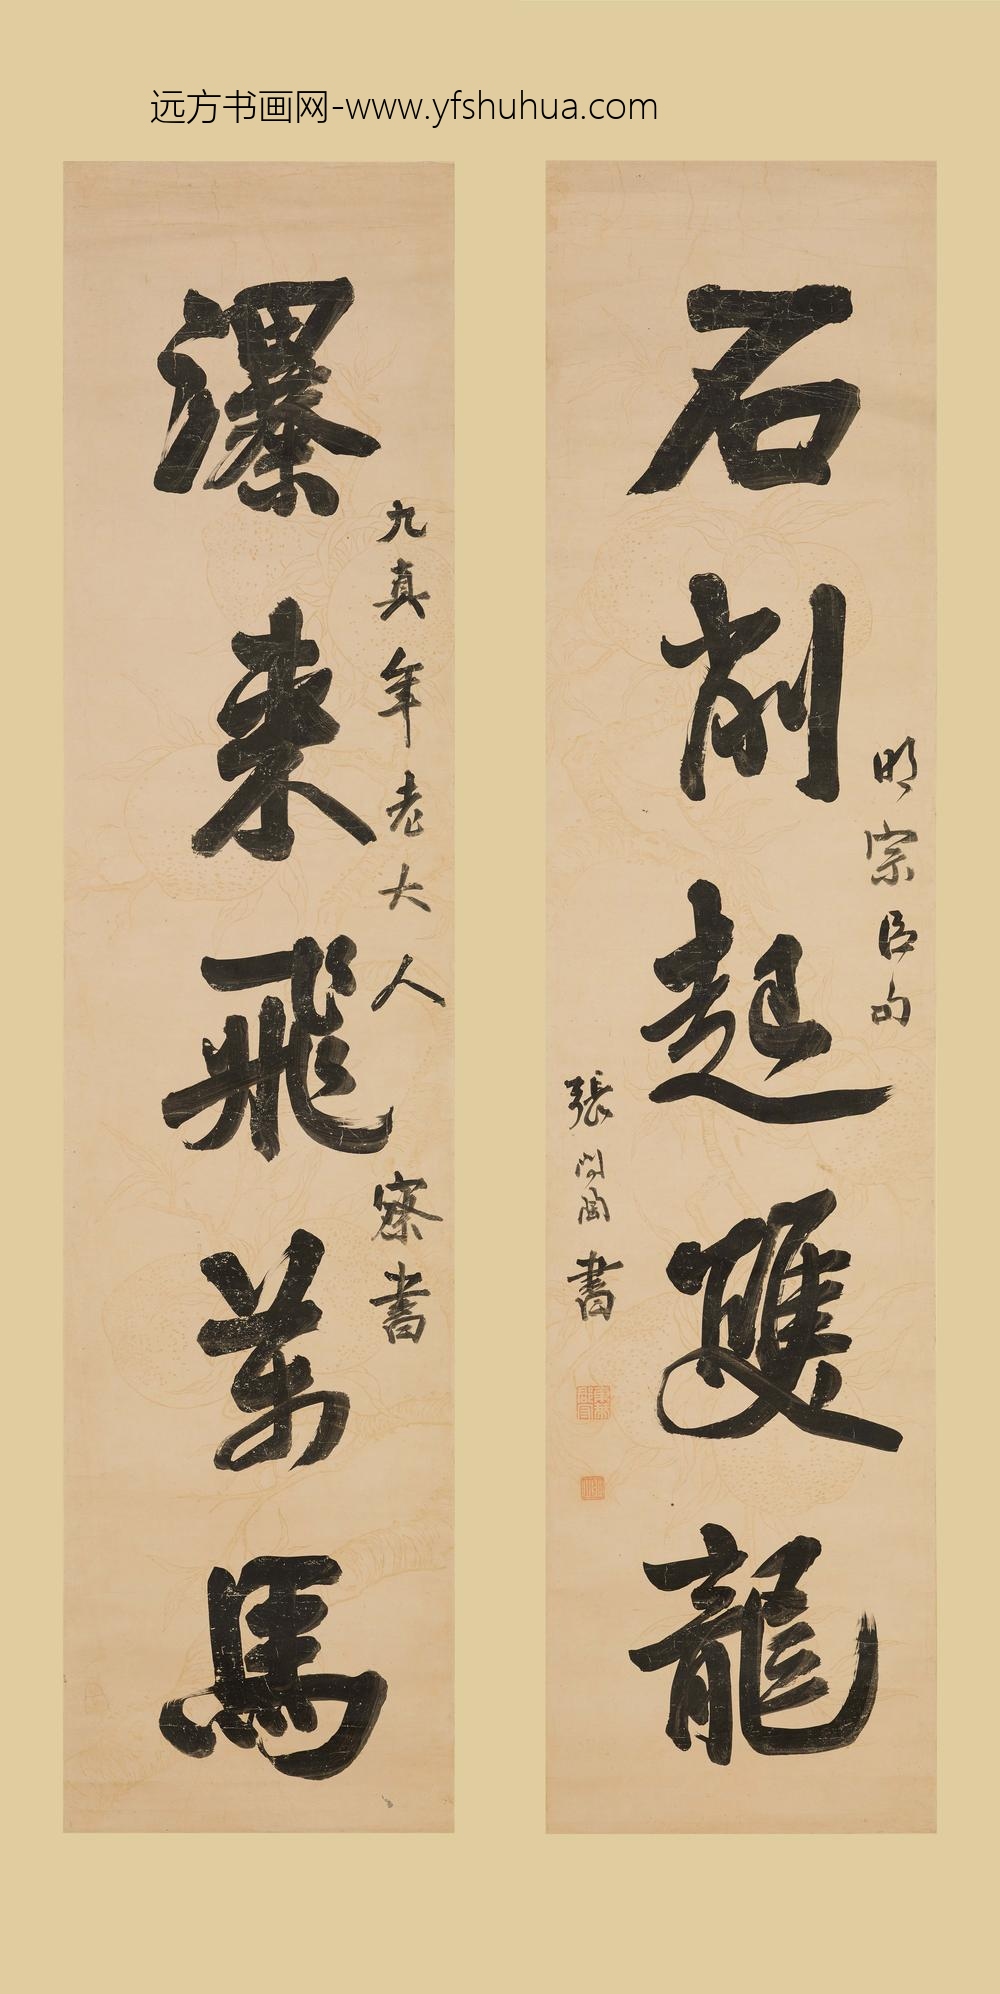 远方书画网-www.yfshuhua.com
石削起雙龍
明宗臣句
張問陶書
瀑來飛萬馬
九真年老大人
察書